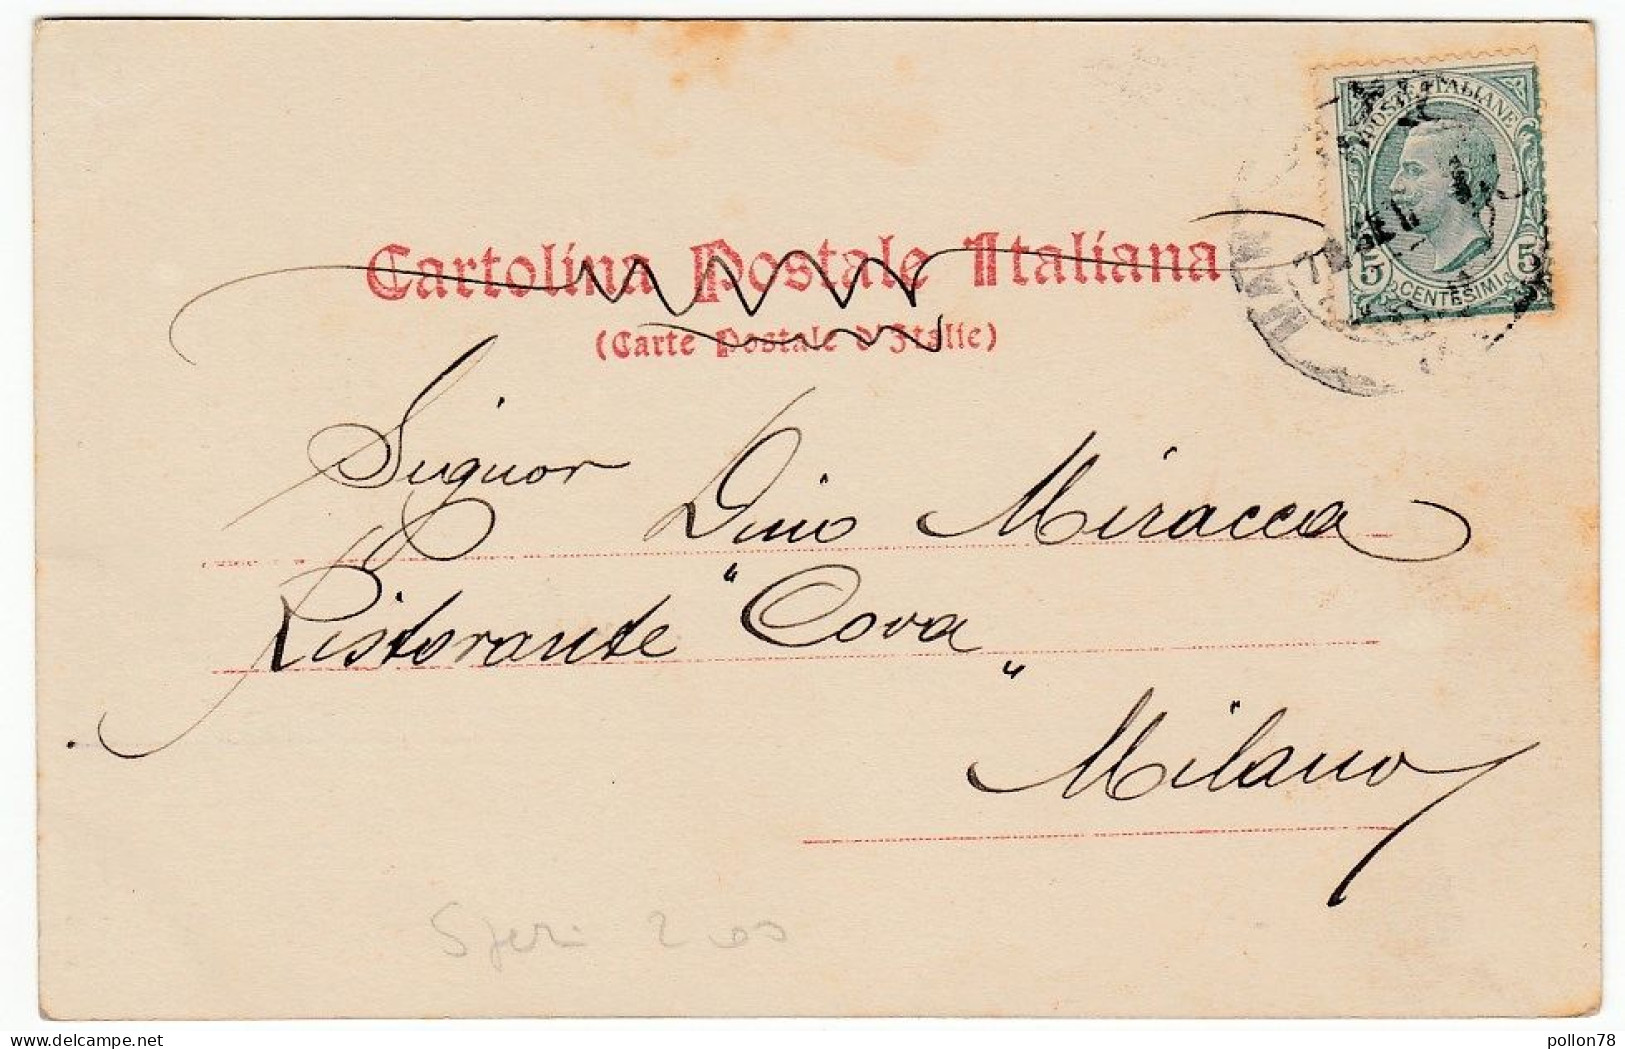 POSTE ITALIANE
5 5
CENTESIMI
Cartolina Postale Italiana
(Carte Postale d'Italie)
Signor Dino Miracca
Ristorante "Cova"
Milano
delcampe.net
pollon78